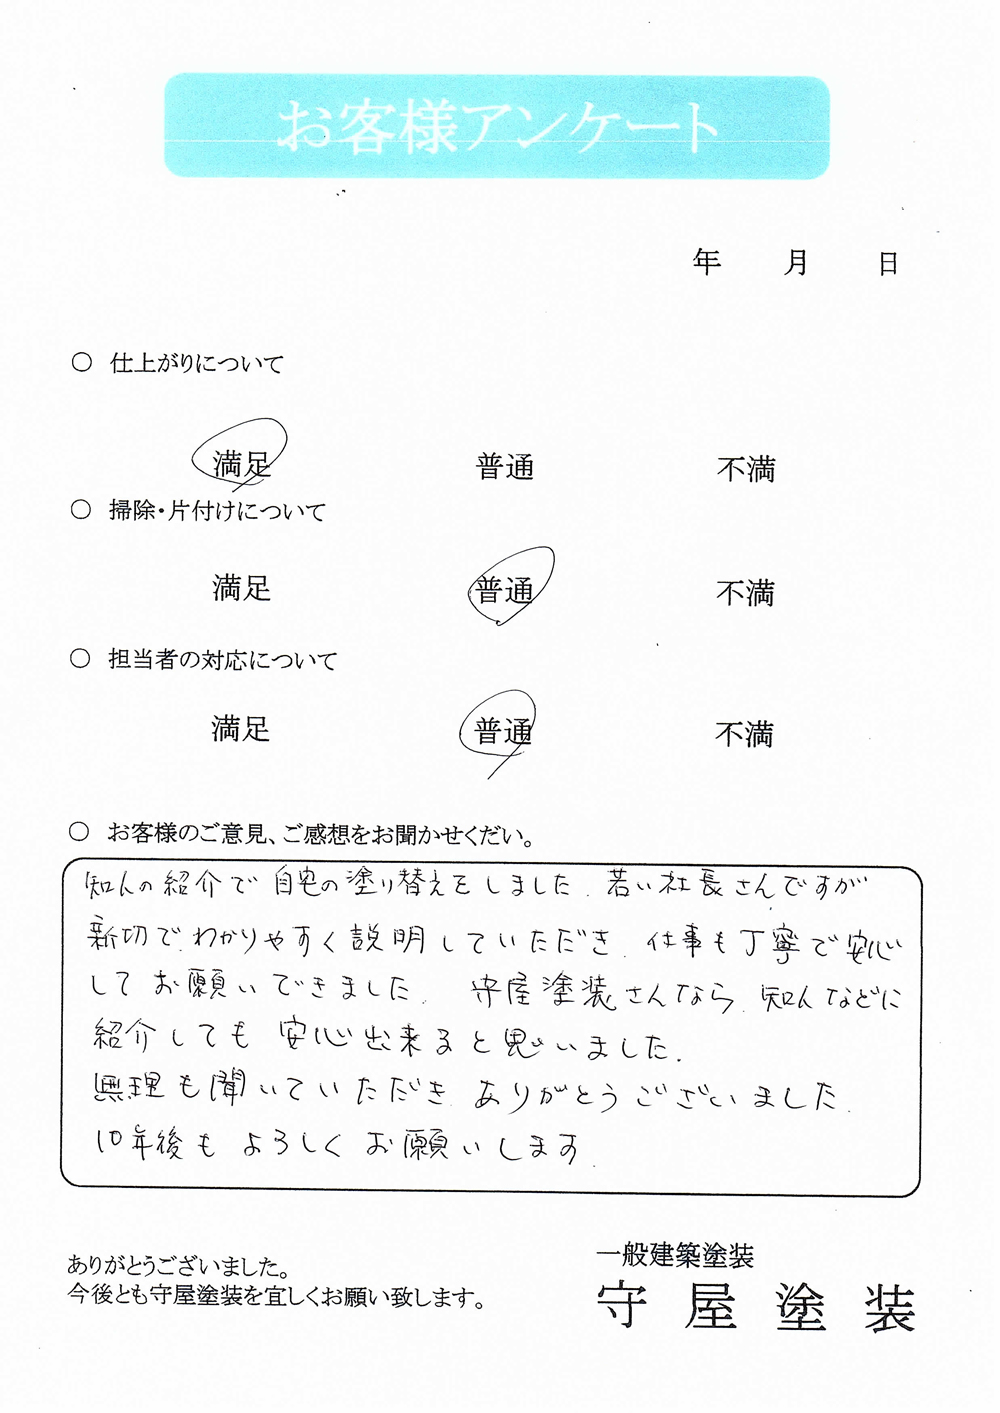 お客様アンケート
年 月 日
○ 仕上がりについて
満足 普通 不満
○ 掃除・片付けについて
満足 普通 不満
○ 担当者の対応について
満足 普通 不満
○ お客様のご意見、ご感想をお聞かせくだい。
知人の紹介で自宅の塗り替えをしました。若い社長さんですが
親切で、わかりやすく説明していただき、仕事も丁寧で安心
してお願いできました。 守屋塗装さんなら、知人などに
紹介しても安心出来ると思いました。
無理も聞いていただき、ありがとうございました。
10年後もよろしくお願いします。
ありがとうございました。
今後とも守屋塗装を宜しくお願い致します。
一般建築塗装
守屋塗装